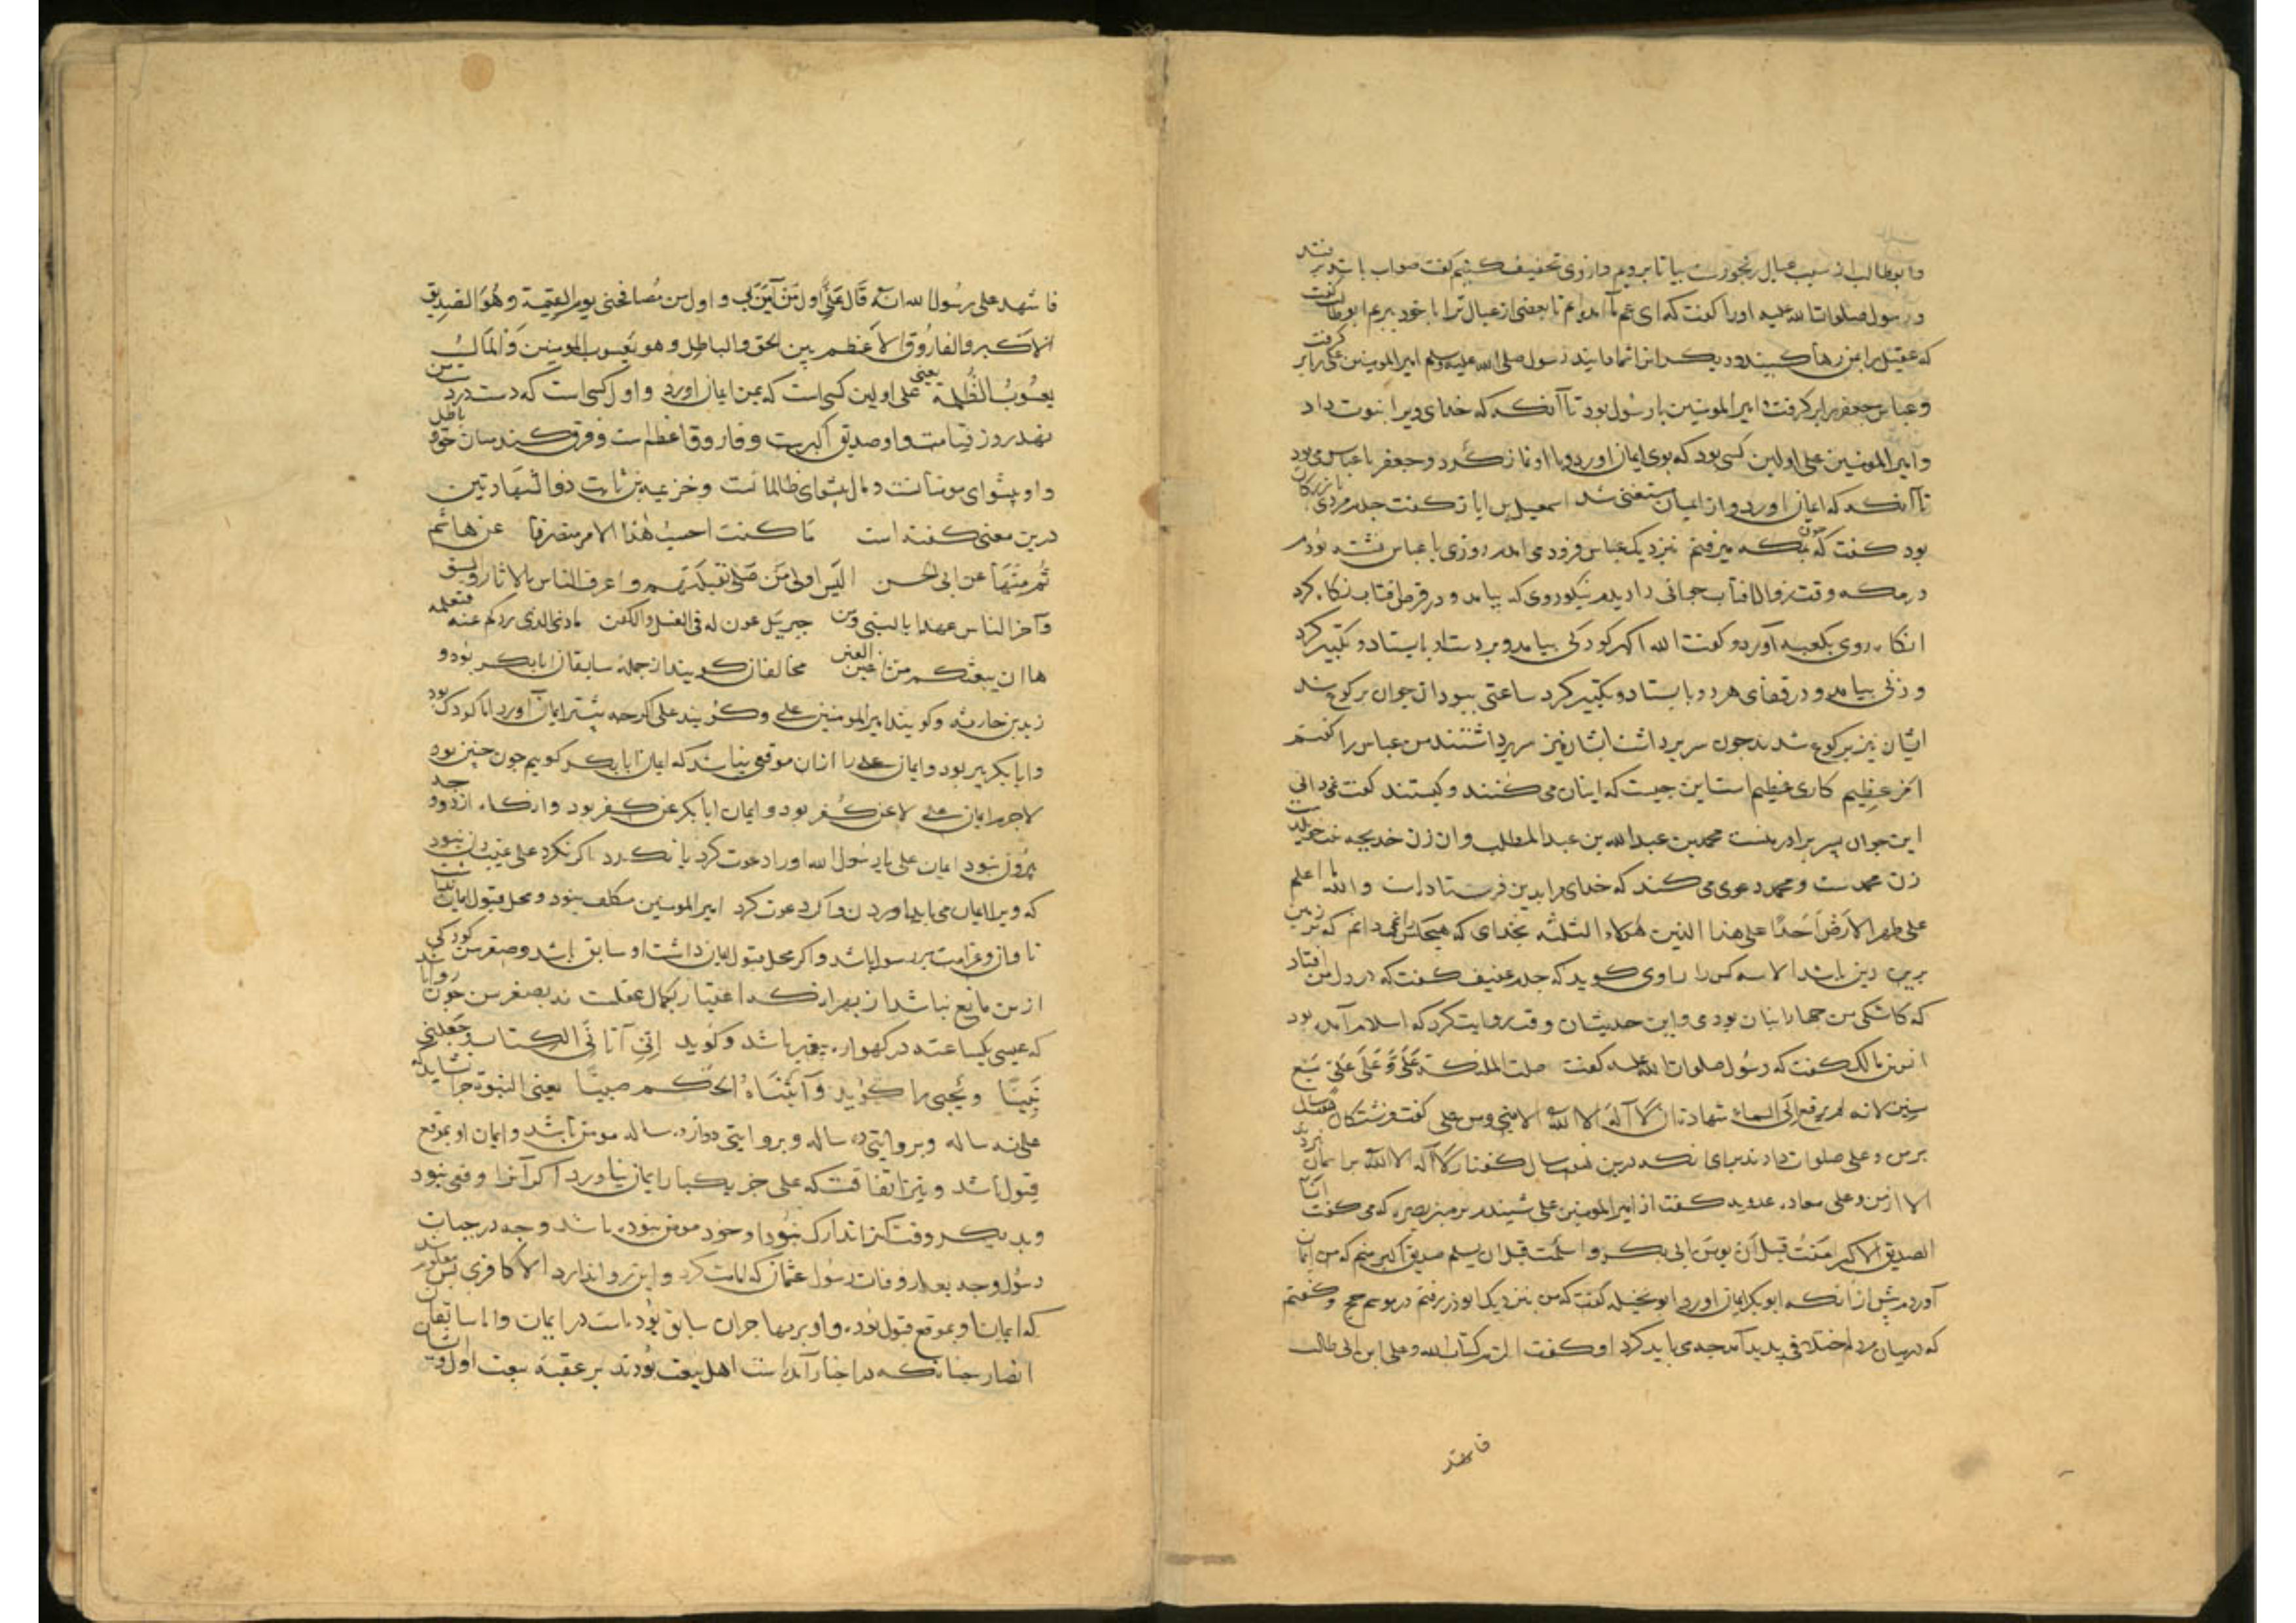 و ابوطالب از سبب عیال رنجورست بیا تا برویم و از وی تخفیف کنیم گفت صواب باشد برفتند
و رسول صلوات الله علیه اورا گفت که ای عم ما آمده ایم تا بعضی از عیال ترا با خود بریم ابوطالب گفت
که عقیل را بمن رها کنید و دیگران شما دانید رسول صلی الله علیه وسلم امیر المومنین علی را بر گرفت
و عباس جعفر را بر گرفت و امیر المومنین با رسول بود تا آنکه که خدای ویرا نبوت داد
و امیر المومنین علی اولین کسی بود که بوی ایمان اورد و با او نماز کرد و جعفر با عباس می بود
تا آنکه که ایمان اورد و از ایشان مستغنی شد اسمعیل بن ایاز گفت جدم مردی بازرگان
بود گفت که چون بمکه میرفتم بنزدیک عباس فرودی امدم روزی با عباس نشسته بودم
در مکه وقت زوال افتاب جوانی را دیدم نیکوروی که بیامد و در قرص افتاب نگاه کرد
انگاه روی بکعبه آورد و گفت الله اکبر کودکی بیامد و بر دست او بایستاد و تکبیر کرد
و زنی بیامد و در قفای هر دو بایستاد و تکبیر کرد ساعتی ببود ان جوان برکوع شد
ایشان نیز برکوع شدند چون سر برداشت ایشان نیز سر برداشتند من عباس را گفتم
امر عظیم کاری عظیم است این چیست که اینان می کنند و کیستند گفت نمی دانی
این جوان پسر برادر منست محمد بن عبد الله بن عبد المطلب و ان زن خدیجه بنت خویلد
زن محمدست و محمد دعوی می کند که خدای مرا بدین فرستاده است و الله ما اعلم
علی ظهر الارض احدا علی هذا الدین هولاء الثلثه بخدای که هیچکس را نمی دانم که بر زمین
برین دین باشد الا سه کس را راوی گوید که جدم عفیف گفت که در دل من افتاد
که کاشکی من چهارم اینان بودمی و این حدیث ان وقت روایت کرد که اسلام آمده بود
انس بن مالک گفت که رسول صلوات الله علیه گفت صلت الملئکة علی و علی علی سبع
سنین لانه لم یرفع الی السماء شهادة ان لا اله الا الله الا منی و من علی گفت فرشتکان هفت سال
بر من و علی صلوات دادند برای انکه درین هفت سال گفتار لا اله الا الله بر اسمان نبردند
الا از من و علی معاده عدویه گفت از امیر المومنین علی شنیدم بر منبر بصره که می گفت انا
الصدیق الاکبر امنت قبل ان یومن ابی بکر و اسلمت قبل ان یسلم صدیق اکبر منم که من ایمان
آوردم پیش از انکه ابوبکر ایمان اورد ابو نخیله گفت که من بنزدیک ابوذر رفتم در موسم حج و گفتم
که در میان مردم اختلافی پدید آمد چه می باید کرد او گفت الزم کتاب الله و علی ابن ابی طالب
فاشهد
فاشهد علی رسول الله انه قال علی اول من آمن بی و اول من یصافحنی یوم القیمة و هو الصدیق
الاکبر و الفاروق الاعظم بین الحق و الباطل و هو یعسوب المومنین و المال
یعسوب الظلمة یعنی علی اولین کسی است که بمن ایمان اورد و اول کسی است که دست در دست من
نهد روز قیامت و او صدیق اکبرست و فاروق اعظم است و فرق کند میان حق و باطل
و او پیشوای مومنانست و مال پیشوای ظالمانست و خزیمه بن ثابت ذو الشهادتین
درین معنی گفته است ما کنت احسب هذا الامر منصرفا عن هاشم
ثم منها عن ابی الحسن الیس اولی من صلی لقبلتهم و اعرف الناس بالاثار و السنن
و آخر الناس عهدا بالنبی و من جبریل عون له فی الغسل و الکفن ماذی الذی ردکم عنه فنعلمه
ها ان بیعتکم من اغبن الغبن مخالفان گویند از جمله سابقان ابابکر بود و
زید بن حارثه و گویند امیر المومنین علی و گویند علی اگرچه پیشتر ایمان آورد اما کودک بود
و ابابکر پیر بود و ایمان علی را از ان موقعی نباشد که ایمان ابابکر گوییم چون چنین بود
لاجرم ایمان علی لا عن کفر بود و ایمان ابابکر عن کفر بود و انگاه از دو وجه
بیرون نبود ایمان علی یا رسول الله اورا دعوت کرد یا نکرد اگر نکرد علی غیب دان نبود
که ویرا ایمان می باید اوردن و اگر دعوت کرد امیر المومنین مکلف نبود و محل قبول ایمان نداشت
تاوان و غرامت بر رسول باشد و اگر محل قبول ایمان داشت او سابق باشد و صغر سن کودکی
از من مانع نباشد از بهر انکه اعتبار بکمال عقلست نه بصغر سن چون روا باشد
که عیسی یکساعته در گهواره پیغمبر باشد و گوید انی آتانی الکتاب و جعلنی
نبیا و یحیی را گوید و آتیناه الحکم صبیا یعنی النبوة چرا نشاید که
علی نه ساله و بروایتی ده ساله و بروایتی دوازده ساله مومن باشد و ایمان او بموقع
قبول باشد و نیز اتفاقست که علی جز یکبار ایمان نیاورد اگر آنرا وقعی نبود
و بدیگر وقت انرا تدارک نبود او خود مومن نبوده باشد و چه در حیات
رسول و چه بعد از وفات رسول عثمان که امامت کرد و این روا ندارد الا کافری پس معلوم شد
که ایمان او بموقع قبول بوده و او بر مهاجران سابق بوده است در ایمان و اما سابقان
انصار چنانکه در اخبار آمده است اهل بیعت بودند بر عقبه بیعت اول و ایشان